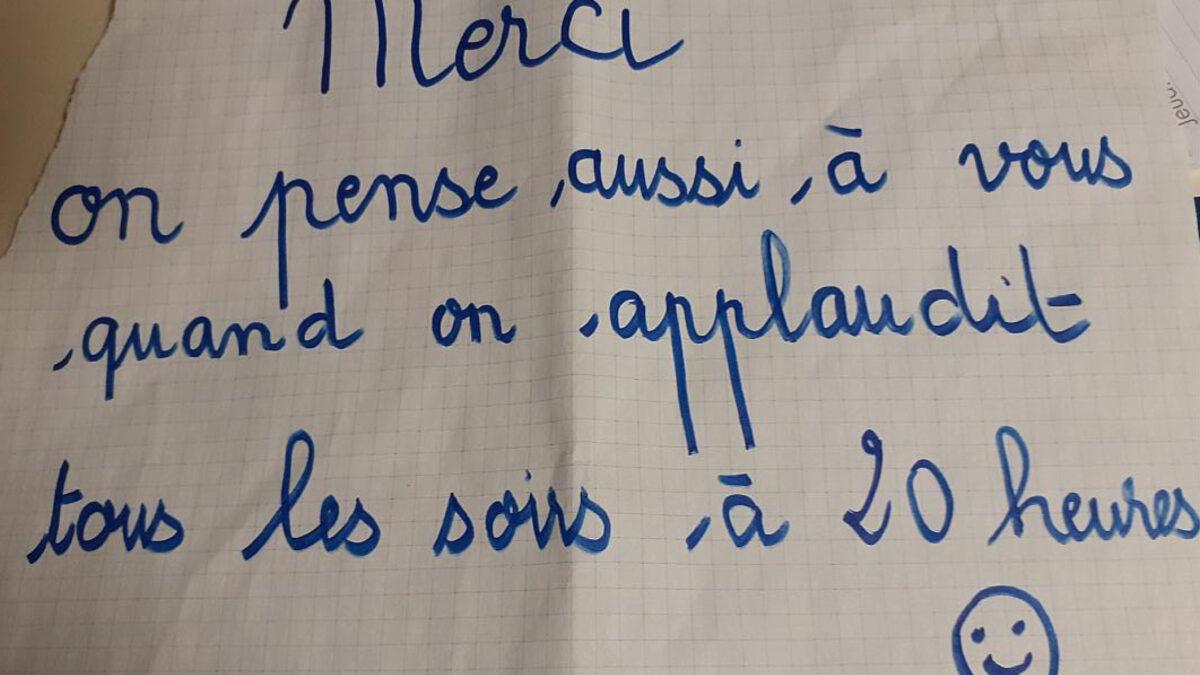 Merci
on pense aussi à vous
quand on applaudit
tous les soirs à 20 heures